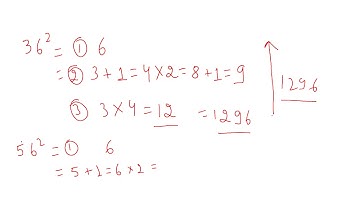 36² = ① 6
= ② 3+1=4×2=8+1=9
1296
③ 3×4=12 = 1296
56² = ① 6
= 5+1=6×2=